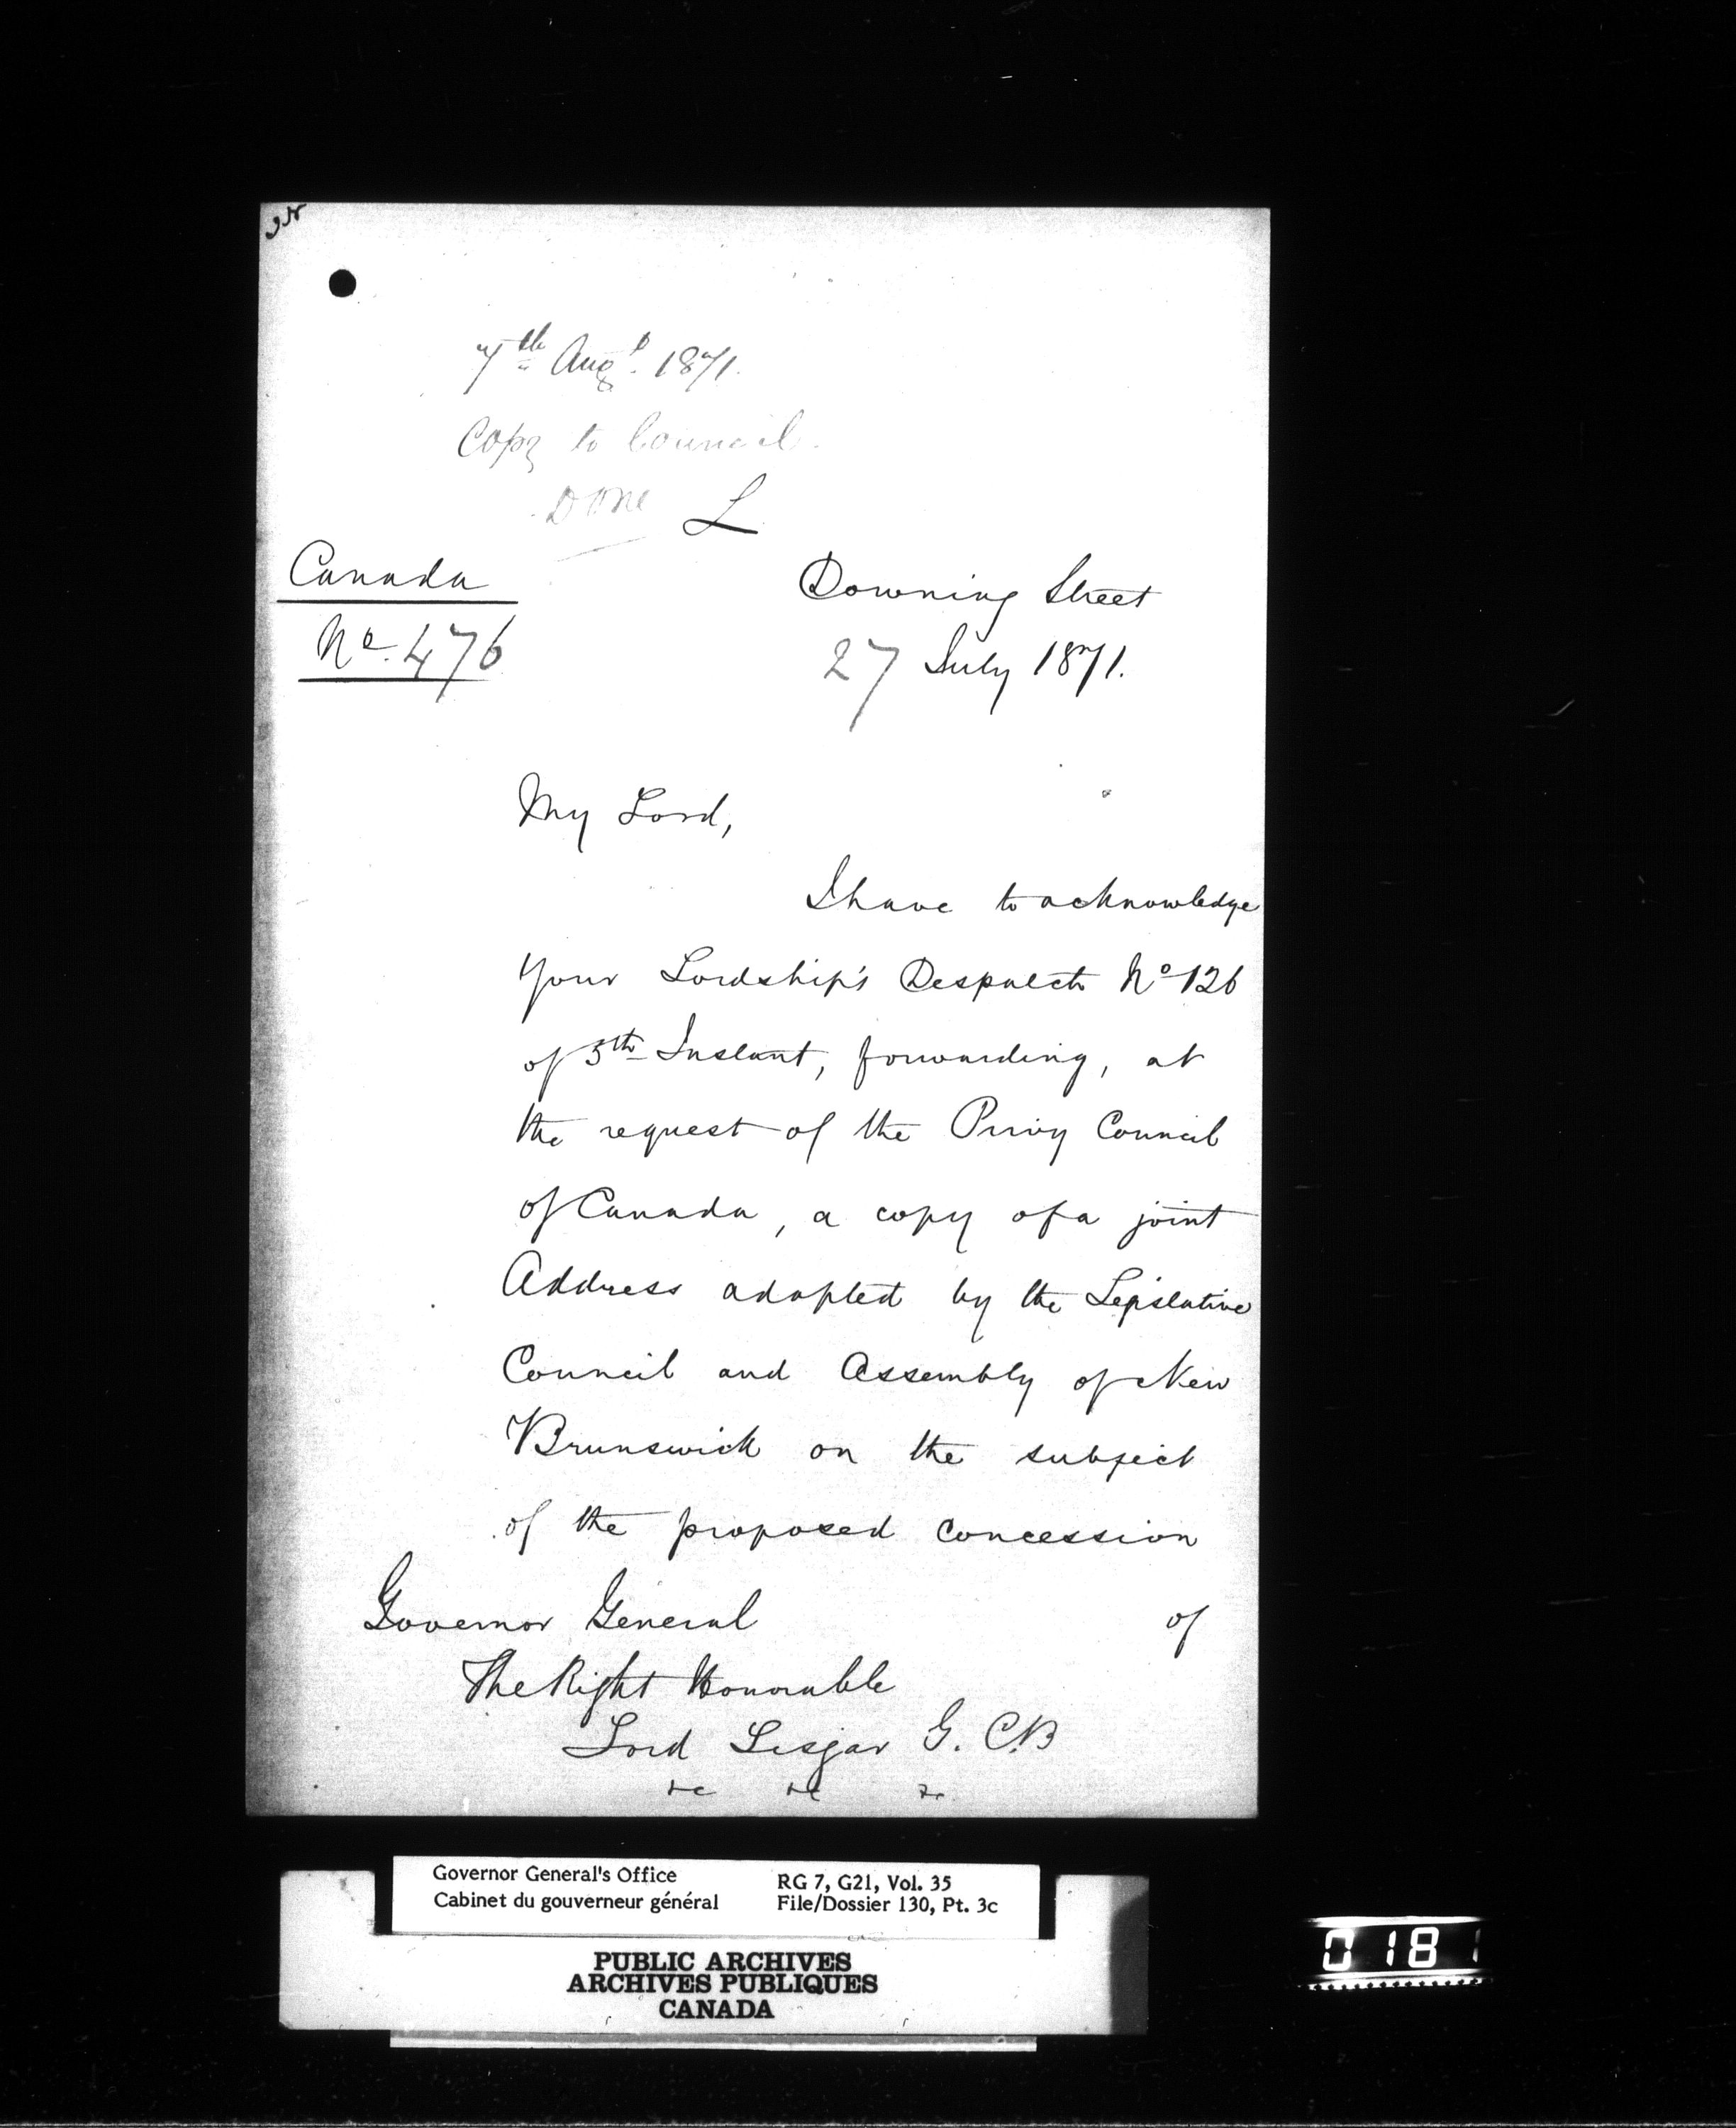 7th Augt. 1871.
Copy to Council.
Done L
Canada
No. 476
Downing Street
27 July 1871.
My Lord,
I have to acknowledge
Your Lordship's Despatch No 126
of 5th Instant, forwarding, at
the request of the Privy Council
of Canada, a copy of a joint
Address adopted by the Legislative
Council and Assembly of New
Brunswick on the subject
of the proposed concession
of
Governor General
The Right Honorable
Lord Lisgar G.C.B
&c &c &c
Governor General's Office
Cabinet du gouverneur général
RG 7, G21, Vol. 35
File/Dossier 130, Pt. 3c
PUBLIC ARCHIVES
ARCHIVES PUBLIQUES
CANADA
0181